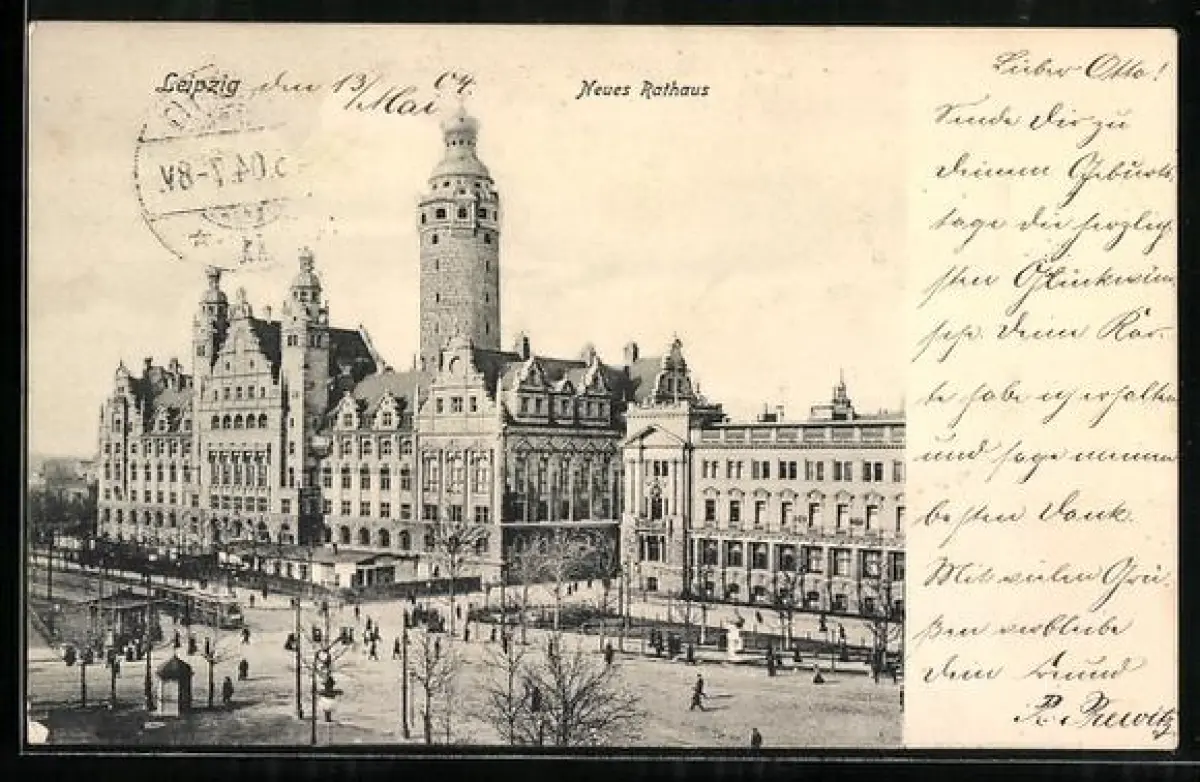 Leipzig den 13/Mai 04.
Neues Rathaus
Lieber Otto!
Sende Dir zu
deinem Geburts
tage die herzlich
sten Glückwün
sche. Deine Kar-
te habe ich erhalten
und sage meinen
besten Dank.
Mit vielen Grü-
ßen verbleibe
dein Freund